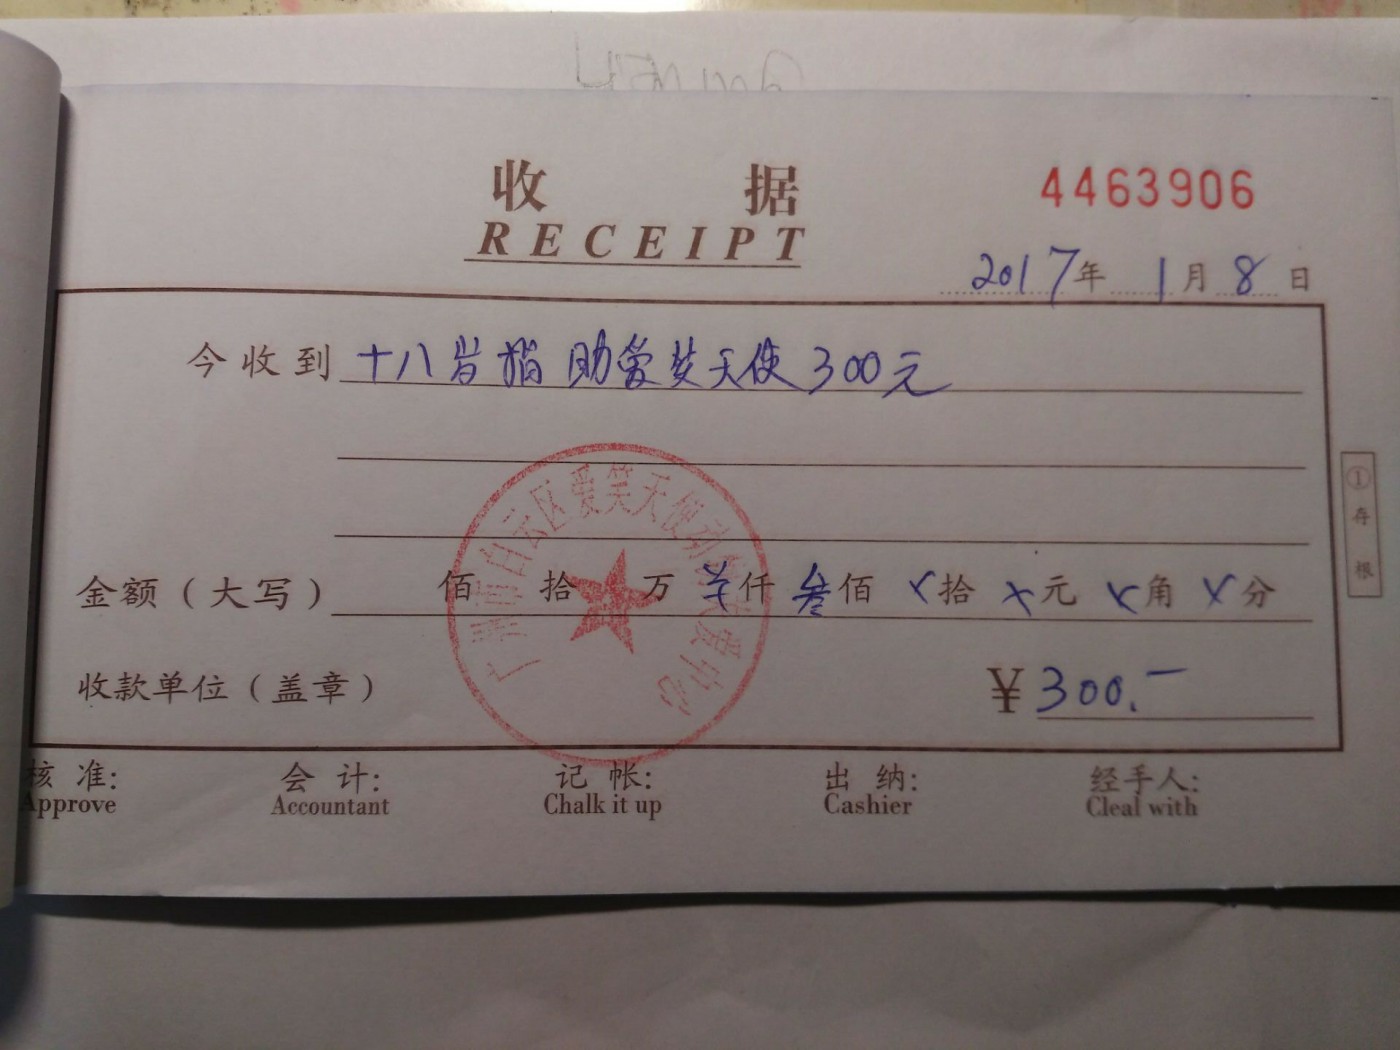 收 据
RECEIPT
4463906
2017年 1月 8日
今收到 十八岁捐助爱笑天使300元
① 存根
金额（大写） 佰 拾 万 仟 叁佰 ㄨ拾 ㄨ元 ㄨ角 ㄨ分
广州市白云区爱笑天使动 中心
收款单位（盖章）
¥300.-
核 准: 会 计: 记 帐: 出 纳: 经手人:
Approve Accountant Chalk it up Cashier Cleal with